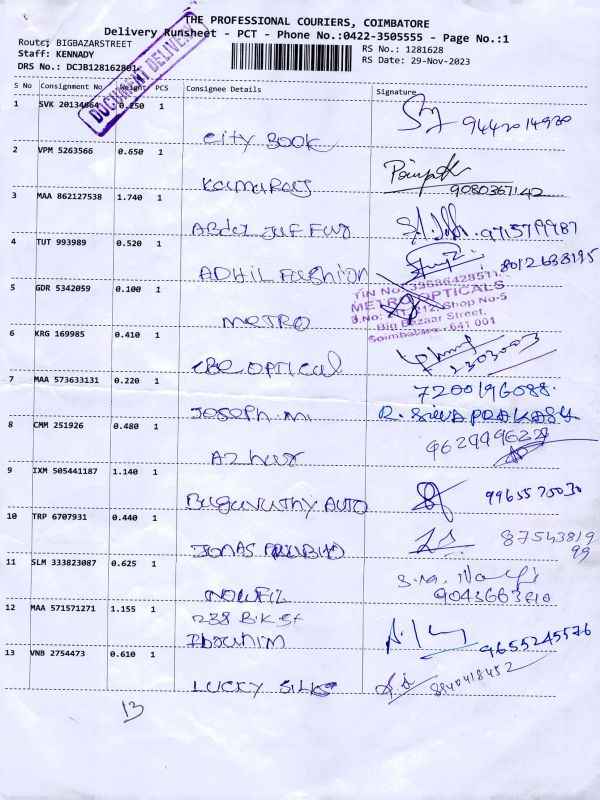 THE PROFESSIONAL COURIERS, COIMBATORE
Delivery Runsheet - PCT - Phone No.:0422-3505555 - Page No.:1
Route: BIGBAZARSTREET
RS No.: 1281628
Staff: KENNADY
RS Date: 29-Nov-2023
DRS No.: DCJB128162801
DOCUMENT DELIVERY
S No Consignment No Weight PCS Consignee Details Signature
1 SVK 20134064 0.250 1
City BOOK 9442014920
2 VPM 5263566 0.650 1
Kamaraj 9080367142
3 MAA 862127538 1.740 1
Abdul 9715799987
4 TUT 993989 0.520 1
ADHIL Fashion 8012633195
5 GDR 5342059 0.100 1
METRO
METRO OPTICALS
Shop No-5
Big Bazaar Street,
Coimbatore - 641 001
6 KRG 169985 0.410 1
OPTICAL
7 MAA 573633131 0.220 1
7200196088
JOSEPH M. R. SIVAPRAKASH
8 CMM 251926 0.480 1
Azhar
9 IXM 505441187 1.140 1
AUTO 9965570030
10 TRP 6707931 0.440 1
JONAS 87543819
99
11 SLM 333823087 0.625 1
NOWFIL
12 MAA 571571271 1.155 1
238 B.K St
Ibrahim 9655245576
13 VNB 2754473 0.610 1
LUCKY SILKS 8840418452
13